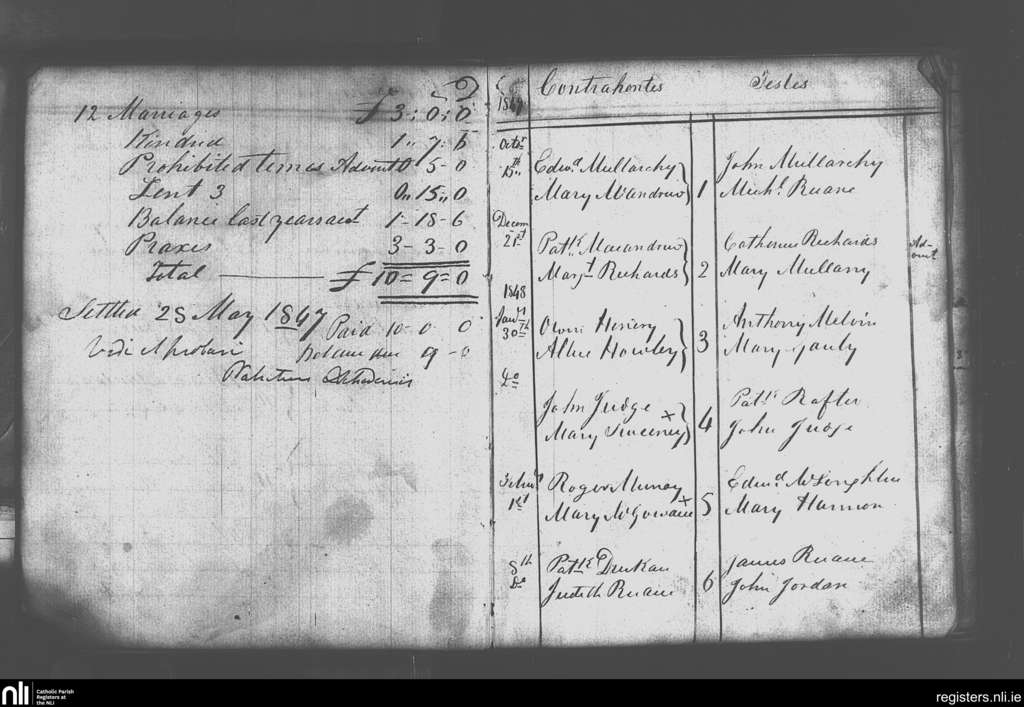 12 Marriages £ 3 : 0 : 0
Kindred 1 " 7 : 6
Prohibited times Advent 0 " 5 - 0
Lent 3 0 " 15 " 0
Balance last years acct 1 - 18 - 6
Proxes 3 - 3 - 0
Total £ 10 = 9 = 0
Settled 28 May 1847
Paid 10 - 0 0
Balance due 9 - 0
Contrahentes Testes
1847
Octr
15th
Edwd Mullarchy John Mullarchy
Mary McAndrew 1 Michl Ruane
Decem
21st
Patk Macandrew Catherine Richards
Margt Richards 2 Mary Mullany
Advent
1848
Jany
30th
Owen Henery Anthony Melvin
Howley 3 Mary Gauly
Do
John Judge Patk Rafter
Mary Sweeney x 4 John Judge
1st
Roger Munnay Edwd McLoughlin
Mary McGowane x 5 Mary Harmon
8th
Do
Patk Durkan James Ruane
Judith Ruane 6 John Jordan
nli
Catholic Parish
Registers at
the NLI
registers.nli.ie